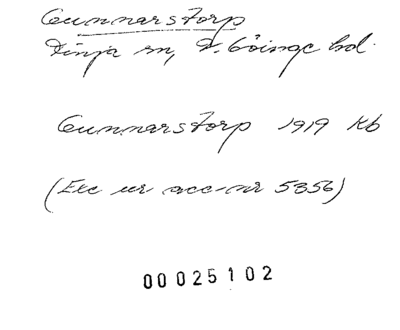 Gunnarstorp
Finja sn, V. Göinge hd.
Gunnarstorp 1919 Kb
(Exc ur acc-nr 5356)
00025102